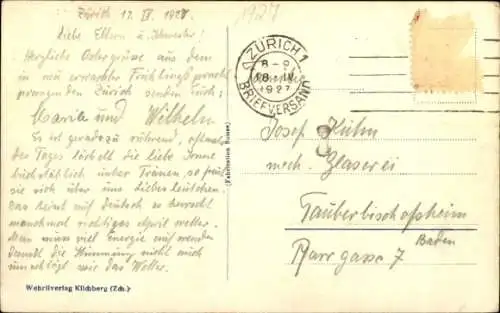 Zürich 17. IV. 1927
Liebe Eltern u. Schwester!
Herzliche Ostergrüsse aus dem
in neu erwachter Frühlingspracht
prangenden Zürich senden Euch:
und Wilhelm
Es ist geradezu rührend, oftmals
des Tages lächelt die liebe Sonne
buchstäblich unter Tränen, so freut
sie sich über uns lieben Leutchen.
Das heint auf Deutsch es herrscht
manchmal richtiges April wetter.
Man muss viel Energie aufwenden
damit die Stimmung nicht auch
umschlägt wie das Wetter.
Wehrliverlag Kilchberg (Zch.)
(Fabrication Suisse)
1927
ZÜRICH 1
8-9
18. IV.
1927
BRIEFVERSAND
Familie
Josef Kühn
mech. Glaserei
Tauberbischofsheim
Baden
Pfarrgasse 7